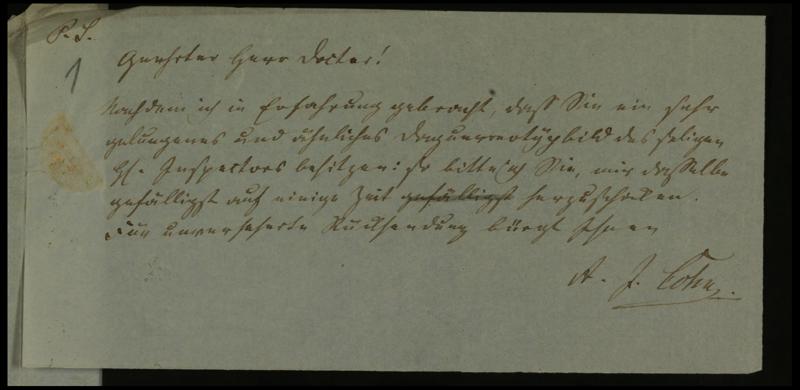 P. S.
1
Geehrter Herr Doctor!
Nachdem ich in Erfahrung gebracht, daß Sie ein sehr
gelungenes und ähnliches Daguerreotypbild des seligen
H. Inspectors besitzen: so bitte ich Sie, mir dasselbe
gefälligst auf einige Zeit gefälligst herzuschicken.
Für unversehrte Rücksendung bürgt Ihnen
A. J. Cohn.